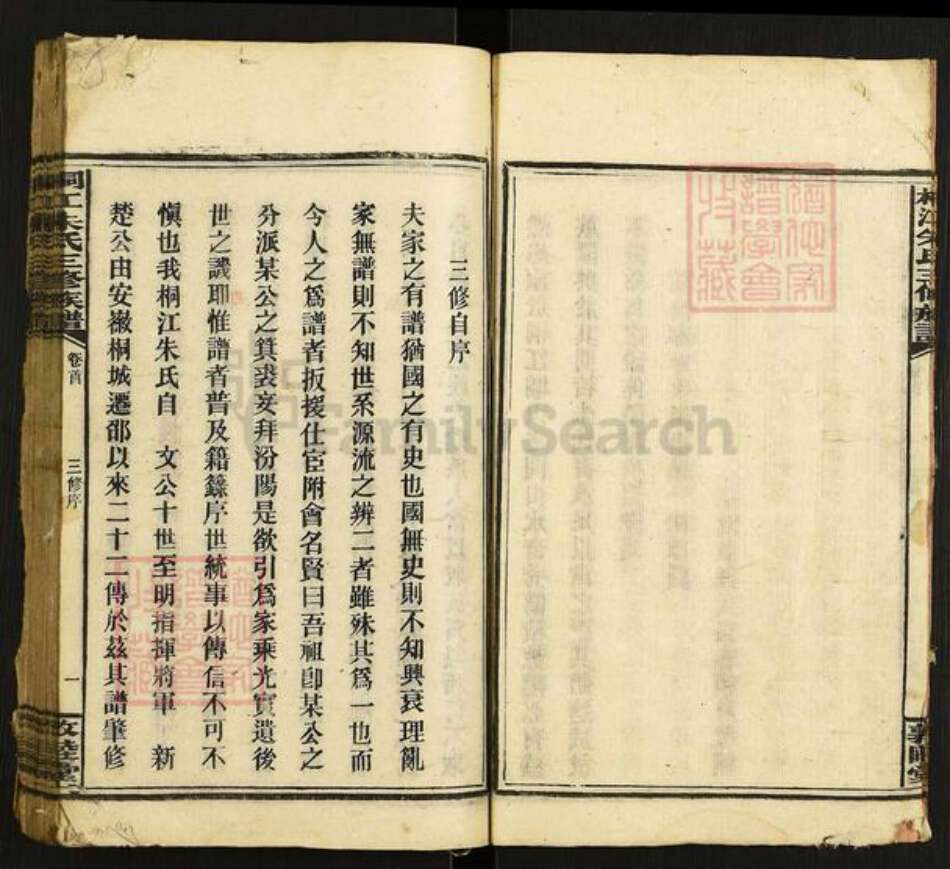 三修自序
夫家之有譜猶國之有史也國無史則不知興衰理亂
家無譜則不知世系源流之辨二者雖殊其爲一也而
今人之爲譜者扳援仕宦附會名賢曰吾祖卽某公之
分派某公之箕裘妄拜汾陽是欲引爲家乘光實遺後
世之譏耶惟譜者普及籍錄序世統事以傳信不可不
愼也我桐江朱氏自 文公十世至明指揮將軍 新
楚公由安徽桐城遷邵以來二十二傳於茲其譜肇修
桐江朱氏三修族譜
卷首
三修序
一
敦睦堂
FamilySearch